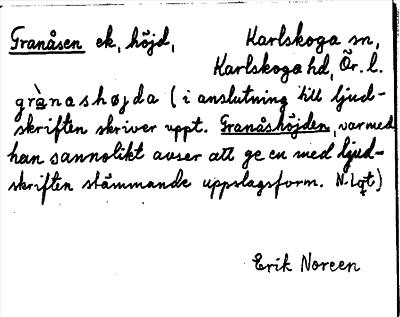 Granåsen ek, höjd, Karlskoga sn,
Karlskoga hd, Ör. l.
grànashøjda (i anslutning till ljud-
skriften skriver uppt. Granåshöjden, varmed
han sannolikt avser att ge en med ljud-
skriften stämmande uppslagsform.
Erik Noreen